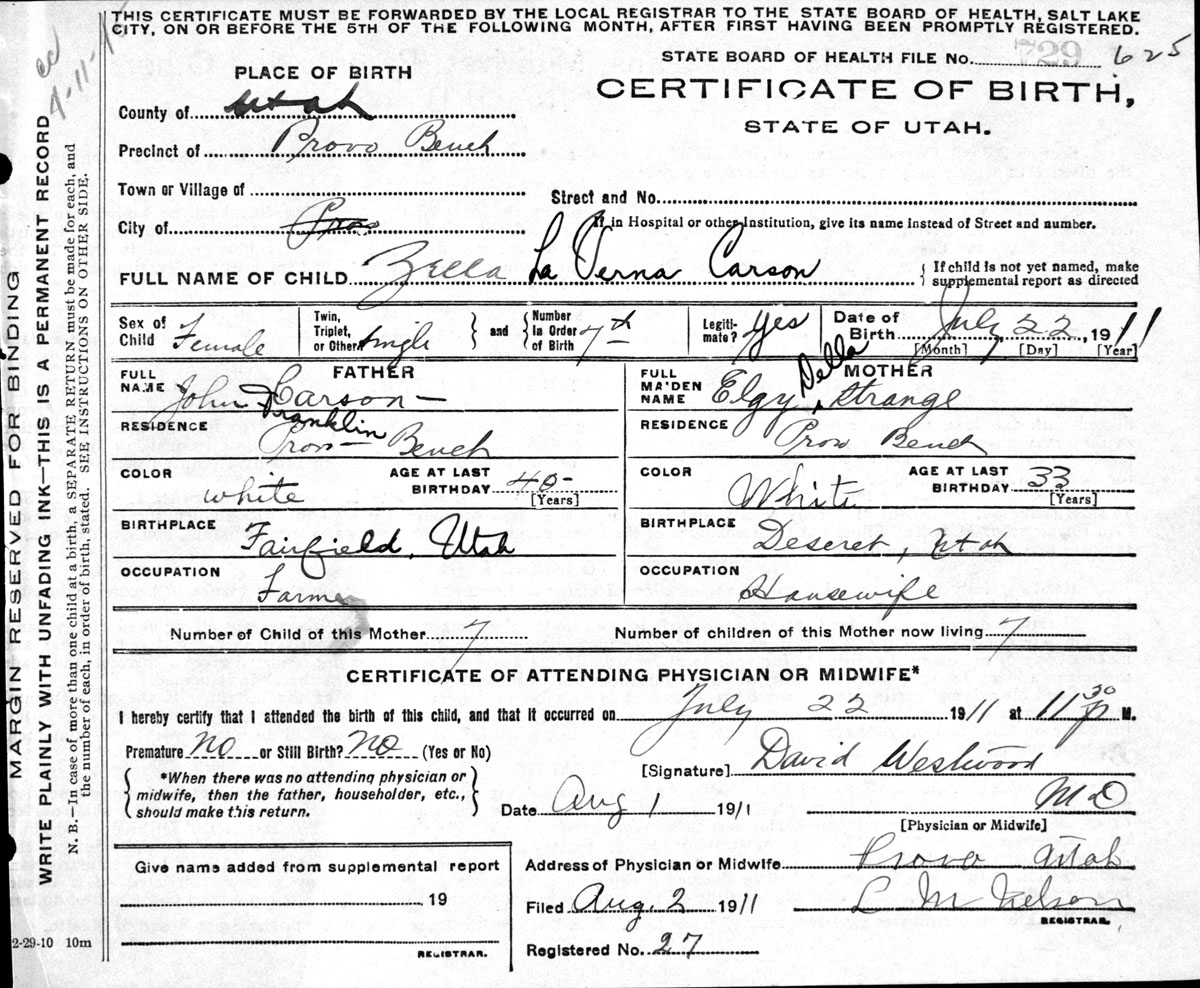 THIS CERTIFICATE MUST BE FORWARDED BY THE LOCAL REGISTRAR TO THE STATE BOARD OF HEALTH, SALT LAKE
CITY, ON OR BEFORE THE 5TH OF THE FOLLOWING MONTH, AFTER FIRST HAVING BEEN PROMPTLY REGISTERED.
STATE BOARD OF HEALTH FILE No. 729 625
PLACE OF BIRTH
CERTIFICATE OF BIRTH,
STATE OF UTAH.
County of Utah
Precinct of Provo Bench
Town or Village of
Street and No.
City of Provo
If in Hospital or other Institution, give its name instead of Street and number.
FULL NAME OF CHILD Zella La Verna Carson
If child is not yet named, make
supplemental report as directed
Sex of Child Female
Twin, Triplet, or Other single
and Number In Order of Birth 7th
Legiti-mate? Yes
Date of Birth July 22, 1911
[Month] [Day] [Year]
FATHER
FULL NAME John Franklin Carson
RESIDENCE Provo Bench
COLOR White
AGE AT LAST BIRTHDAY 40
[Years]
BIRTHPLACE Fairfield, Utah
OCCUPATION Farmer
MOTHER
FULL MA'DEN NAME Elgy Della Strange
RESIDENCE Provo Bench
COLOR White
AGE AT LAST BIRTHDAY 33
[Years]
BIRTHPLACE Deseret, Utah
OCCUPATION Housewife
Number of Child of this Mother 7 Number of children of this Mother now living 7
CERTIFICATE OF ATTENDING PHYSICIAN OR MIDWIFE*
I hereby certify that I attended the birth of this child, and that it occurred on July 22 1911 at 11 30 P M.
Premature No or Still Birth? No (Yes or No)
*When there was no attending physician or
midwife, then the father, householder, etc.,
should make this return.
[Signature] David Westwood
MD
[Physician or Midwife]
Date Aug 1 1911
Give name added from supplemental report
19
REGISTRAR.
Address of Physician or Midwife Provo Utah
Filed Aug. 2 1911 L M Nelson
REGISTRAR.
Registered No. 27
2-29-10 10m
MARGIN RESERVED FOR BINDING
WRITE PLAINLY WITH UNFADING INK—THIS IS A PERMANENT RECORD
N. B.—In case of more than one child at a birth, a SEPARATE RETURN must be made for each, and
the number of each, in order of birth, stated. SEE INSTRUCTIONS ON OTHER SIDE.